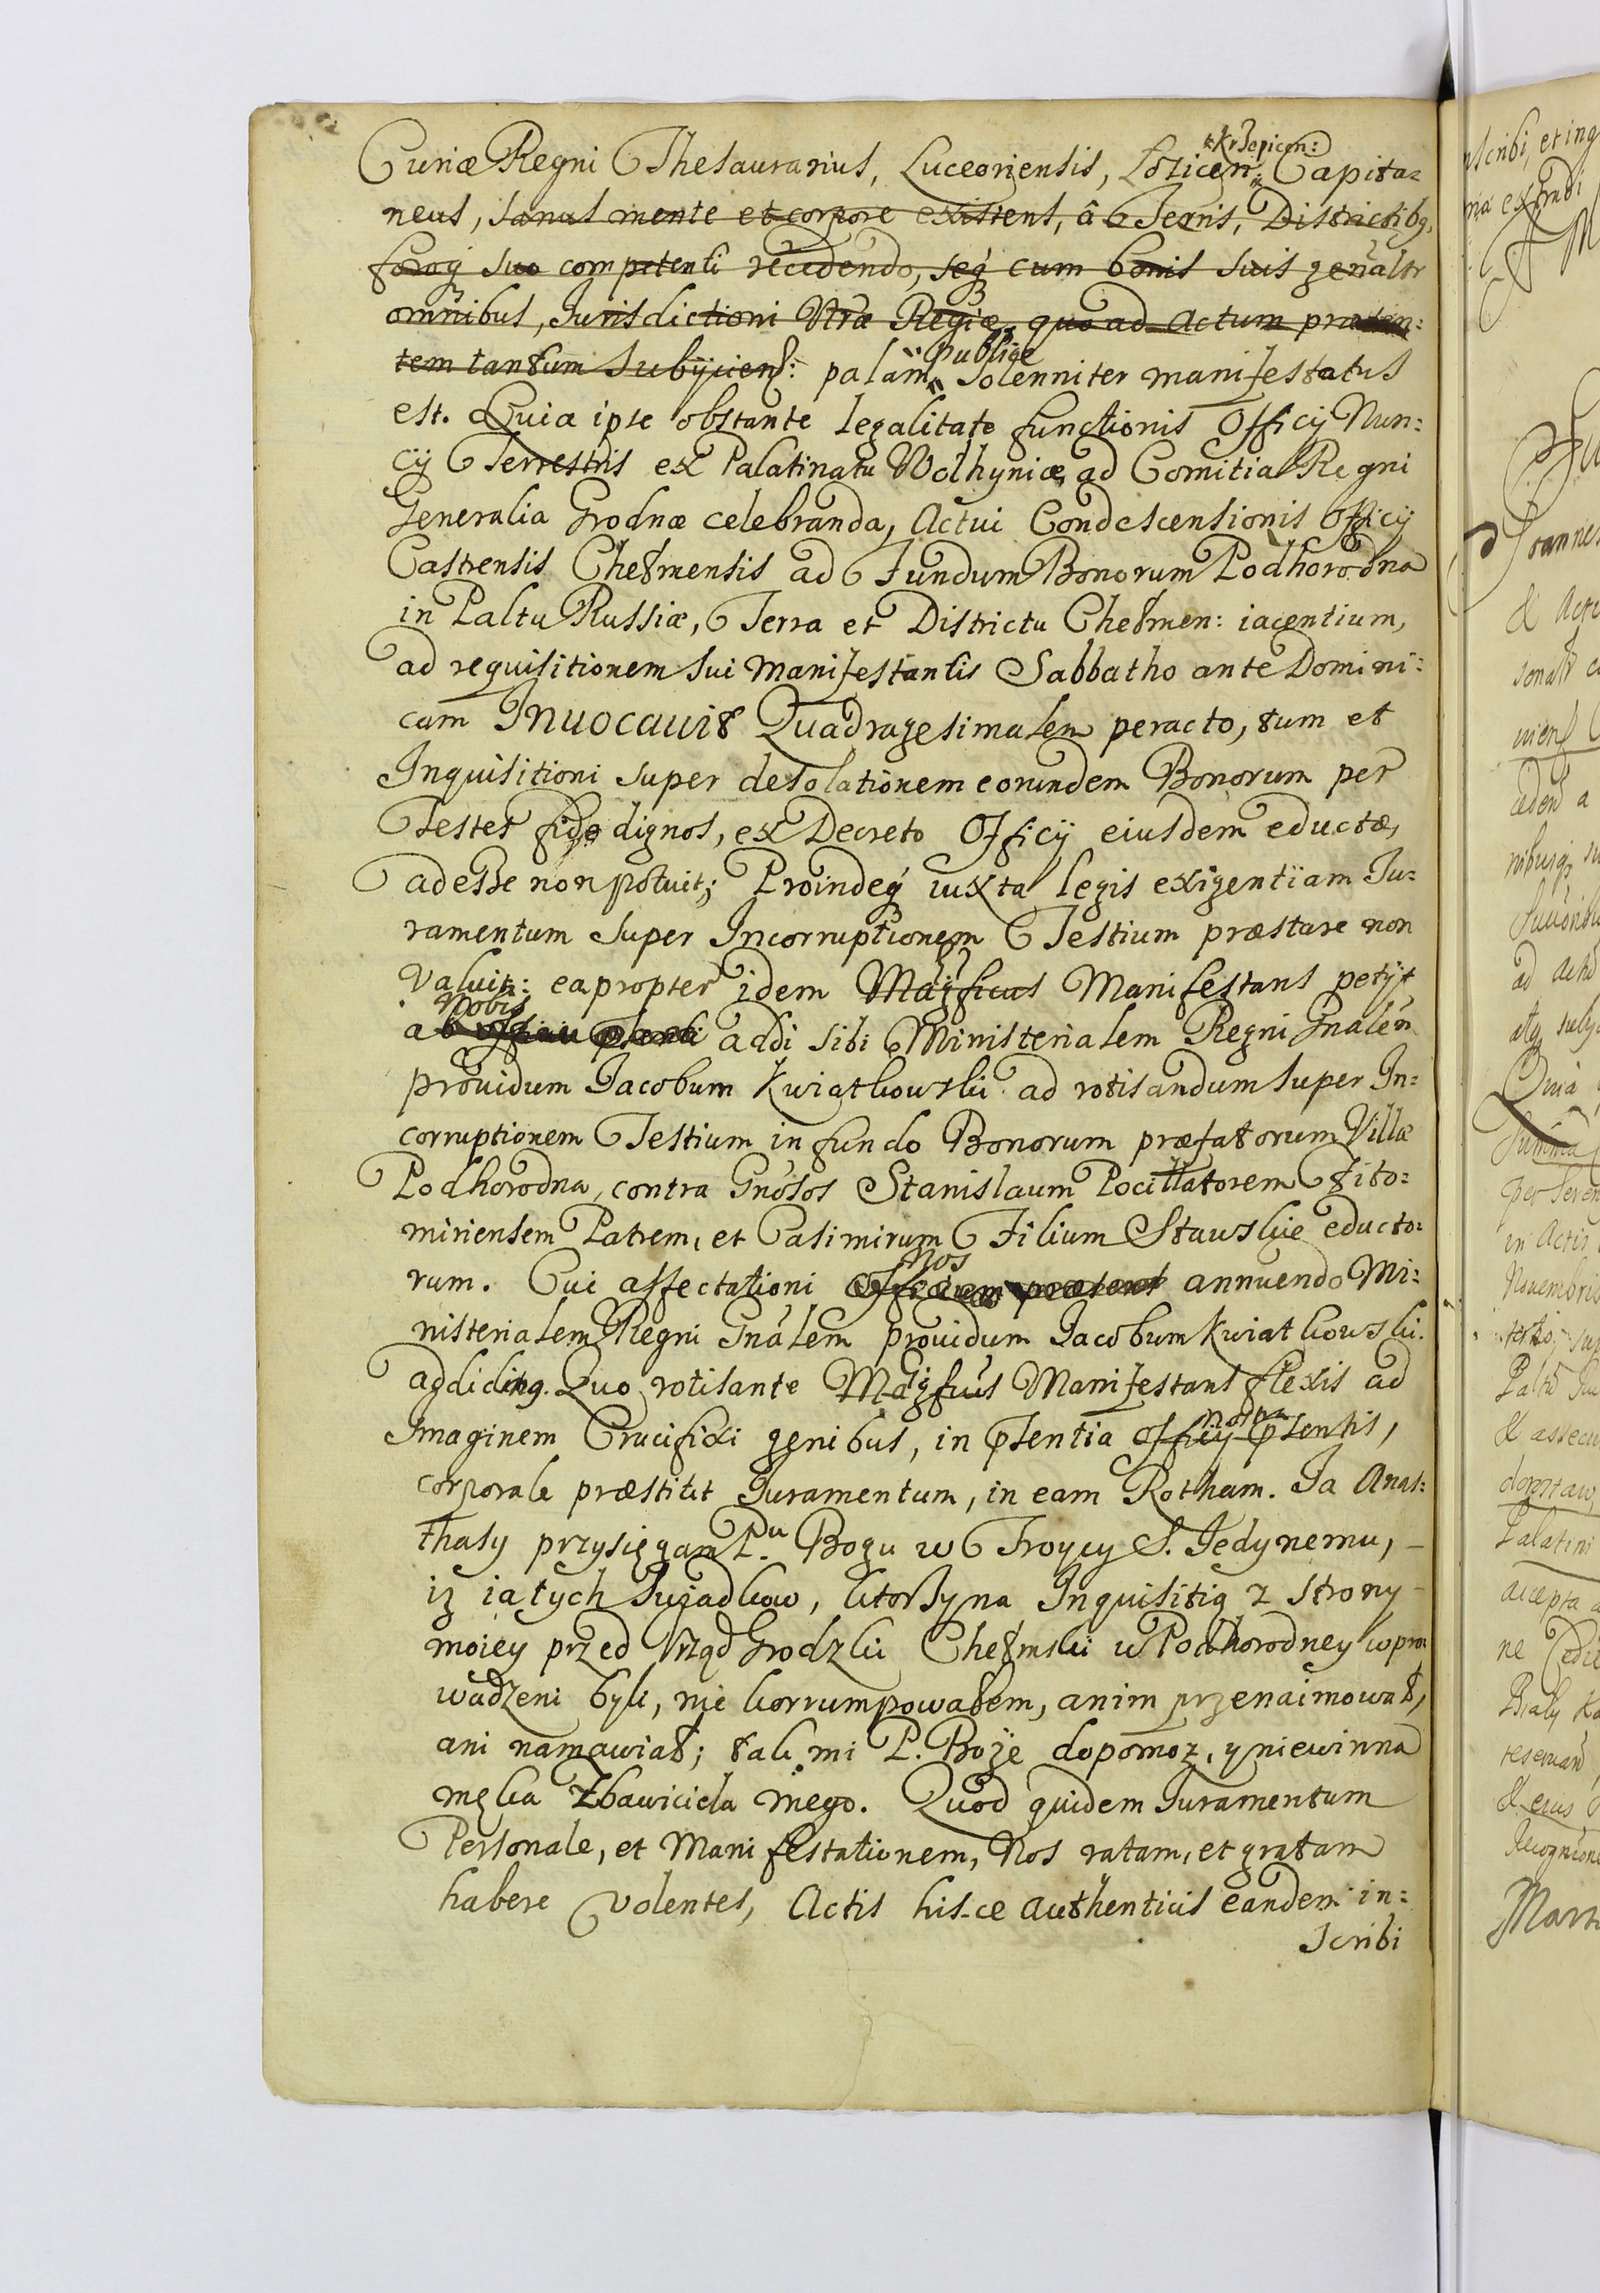 Curiæ Regni Thesaurarius, Luceoriensis, Łosicen: Krzepicen: Capita-
neus, sanus mente et corpore existens, â Terris, Districtibq,
foroq suo competenti recedendo, seq cum bonis suis genâltr
omnibus, Jurisdictioni Nrâ Regiæ, quo ad actum præsen:
tem tantum subijciens: palàm publice solenniter manifestatus
est. Quia ipse obstante legalitate functionis Officij Nun:
cij Terrestris ex Palatinatu Wolhyniæ ad Comitia Regni
Generalia Grodnæ celebranda, Actui Condescensionis Officij
Castrensis Chełmensis ad Fundum Bonorum Podhorodna
in Paltu Russiæ, Terra et Districtu Chełmen: iacentium,
ad requisitionem sui Manifestantis Sabbatho ante Domini:
cam Inuocauit Quadragesimalem peracto, tum et
Inquisitioni super desolationem eorundem Bonorum per
Testes fide dignos, ex Decreto Officij eiusdem eductæ,
adesse non potuit; Proindeq iuxta legis exigentiam Ju:
ramentum super Incorruptionem Testium præstare non
valuit: eapropter idem Magficus Manifestans petijt
a Nobis addi sibi Ministerialem Regni Gnâlem
prouidum Jacobum Kwiatkowski ad rotisandum super In:
corruptionem Testium in fundo Bonorum præfatorum Villæ
Podhorodna, contra Gnôsos Stanislaum Pocillatorem Żito:
miriensem Patrem, et Casimirum Filium Stawskie educto:
rum. Cui affectationi Officium præsens Nos annuendo Mi:
nisterialem Regni Gnâlem prouidum Jacobum Kwiatkowski
addidimq. Quo rotisante Magfcus Manifestans flexis ad
Imaginem Crucifixi genibus, in psentia Officij psentis, nostra
corporale præstitit Juramentum, in eam Rotham. Ja Anas:
thasy przysięgam P.u Bogu w Troycy S. Jedynemu,
iż ia tych Swiadkow, ktorzy na Inquisitią z strony
moiey przed Urząd Grodzki Chełmski w Podhorodney wpro:
wadzeni byli, nie korrumpowałem, anim przenaimował,
ani namawiał; tak mi P. Boże dopomoz, y niewinna
męka Zbawiciela mego. Quod quidem Juramentum
Personale, et Manifestationem, Nos ratam, et gratam
habere volentes, Actis hisce authenticis eandem in:
scribi